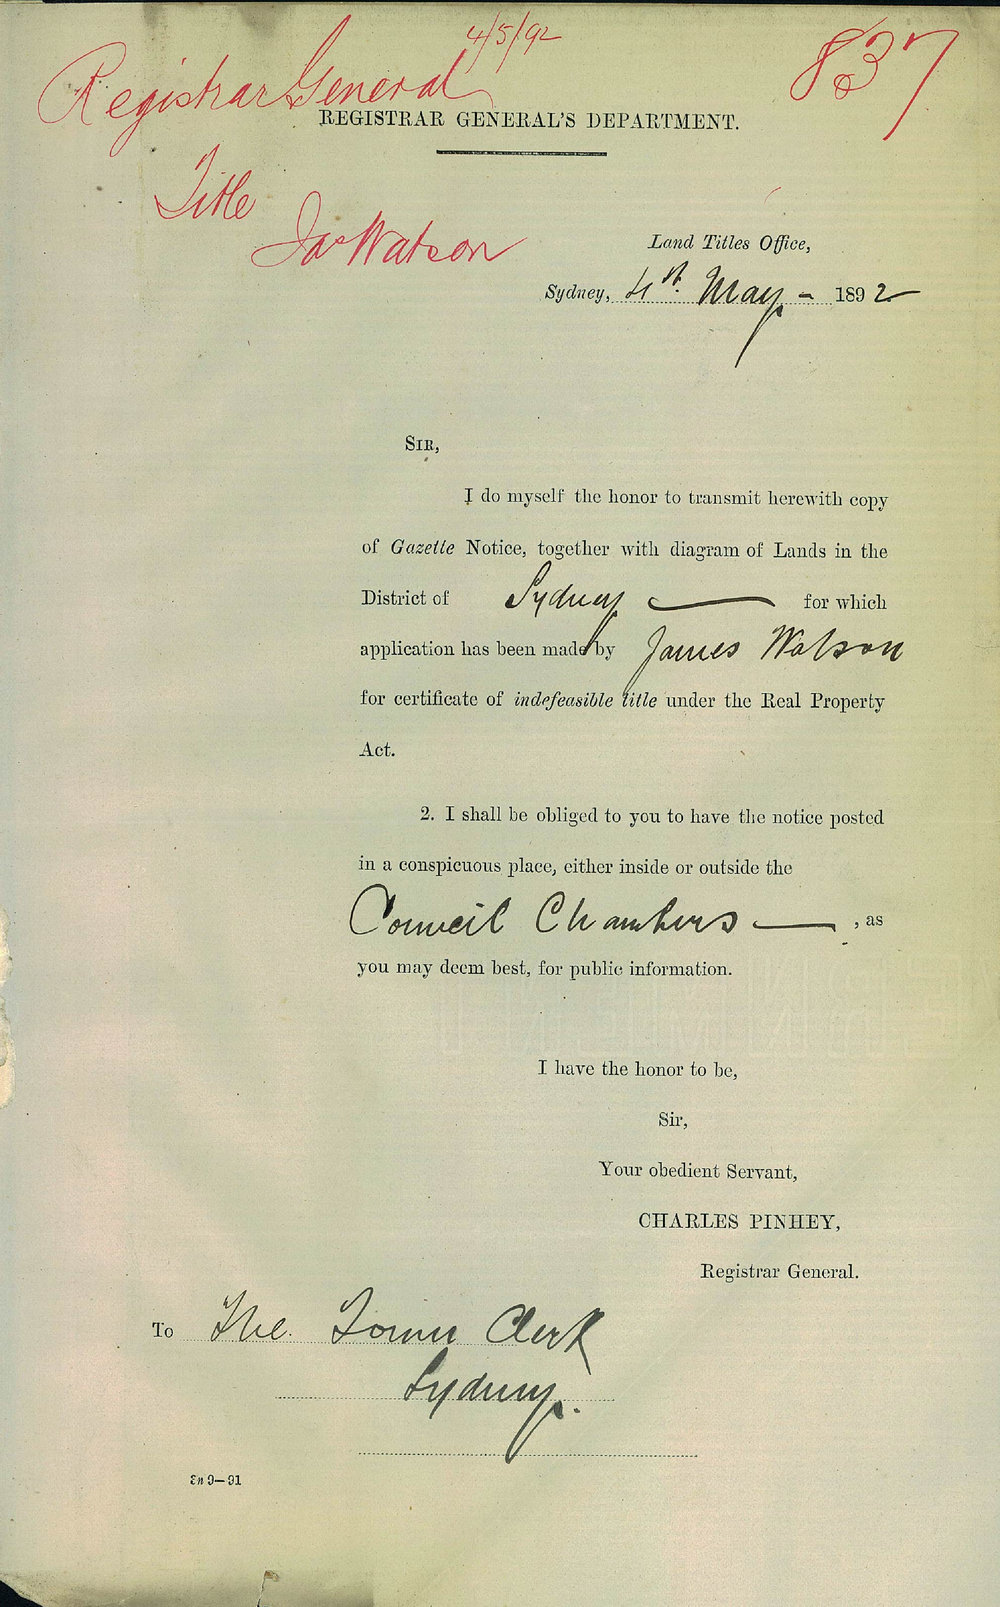 4/5/92
Registrar General
837
REGISTRAR GENERAL'S DEPARTMENT.
Title
Jas Watson
Land Titles Office,
Sydney, 4th. May – 1892
SIR,
I do myself the honor to transmit herewith copy
of Gazette Notice, together with diagram of Lands in the
District of Sydney — for which
application has been made by James Watson
for certificate of indefeasible title under the Real Property
Act.
2. I shall be obliged to you to have the notice posted
in a conspicuous place, either inside or outside the
Council Chambers — , as
you may deem best, for public information.
I have the honor to be,
Sir,
Your obedient Servant,
CHARLES PINHEY,
Registrar General.
To The Town Clerk
Sydney.
9—91